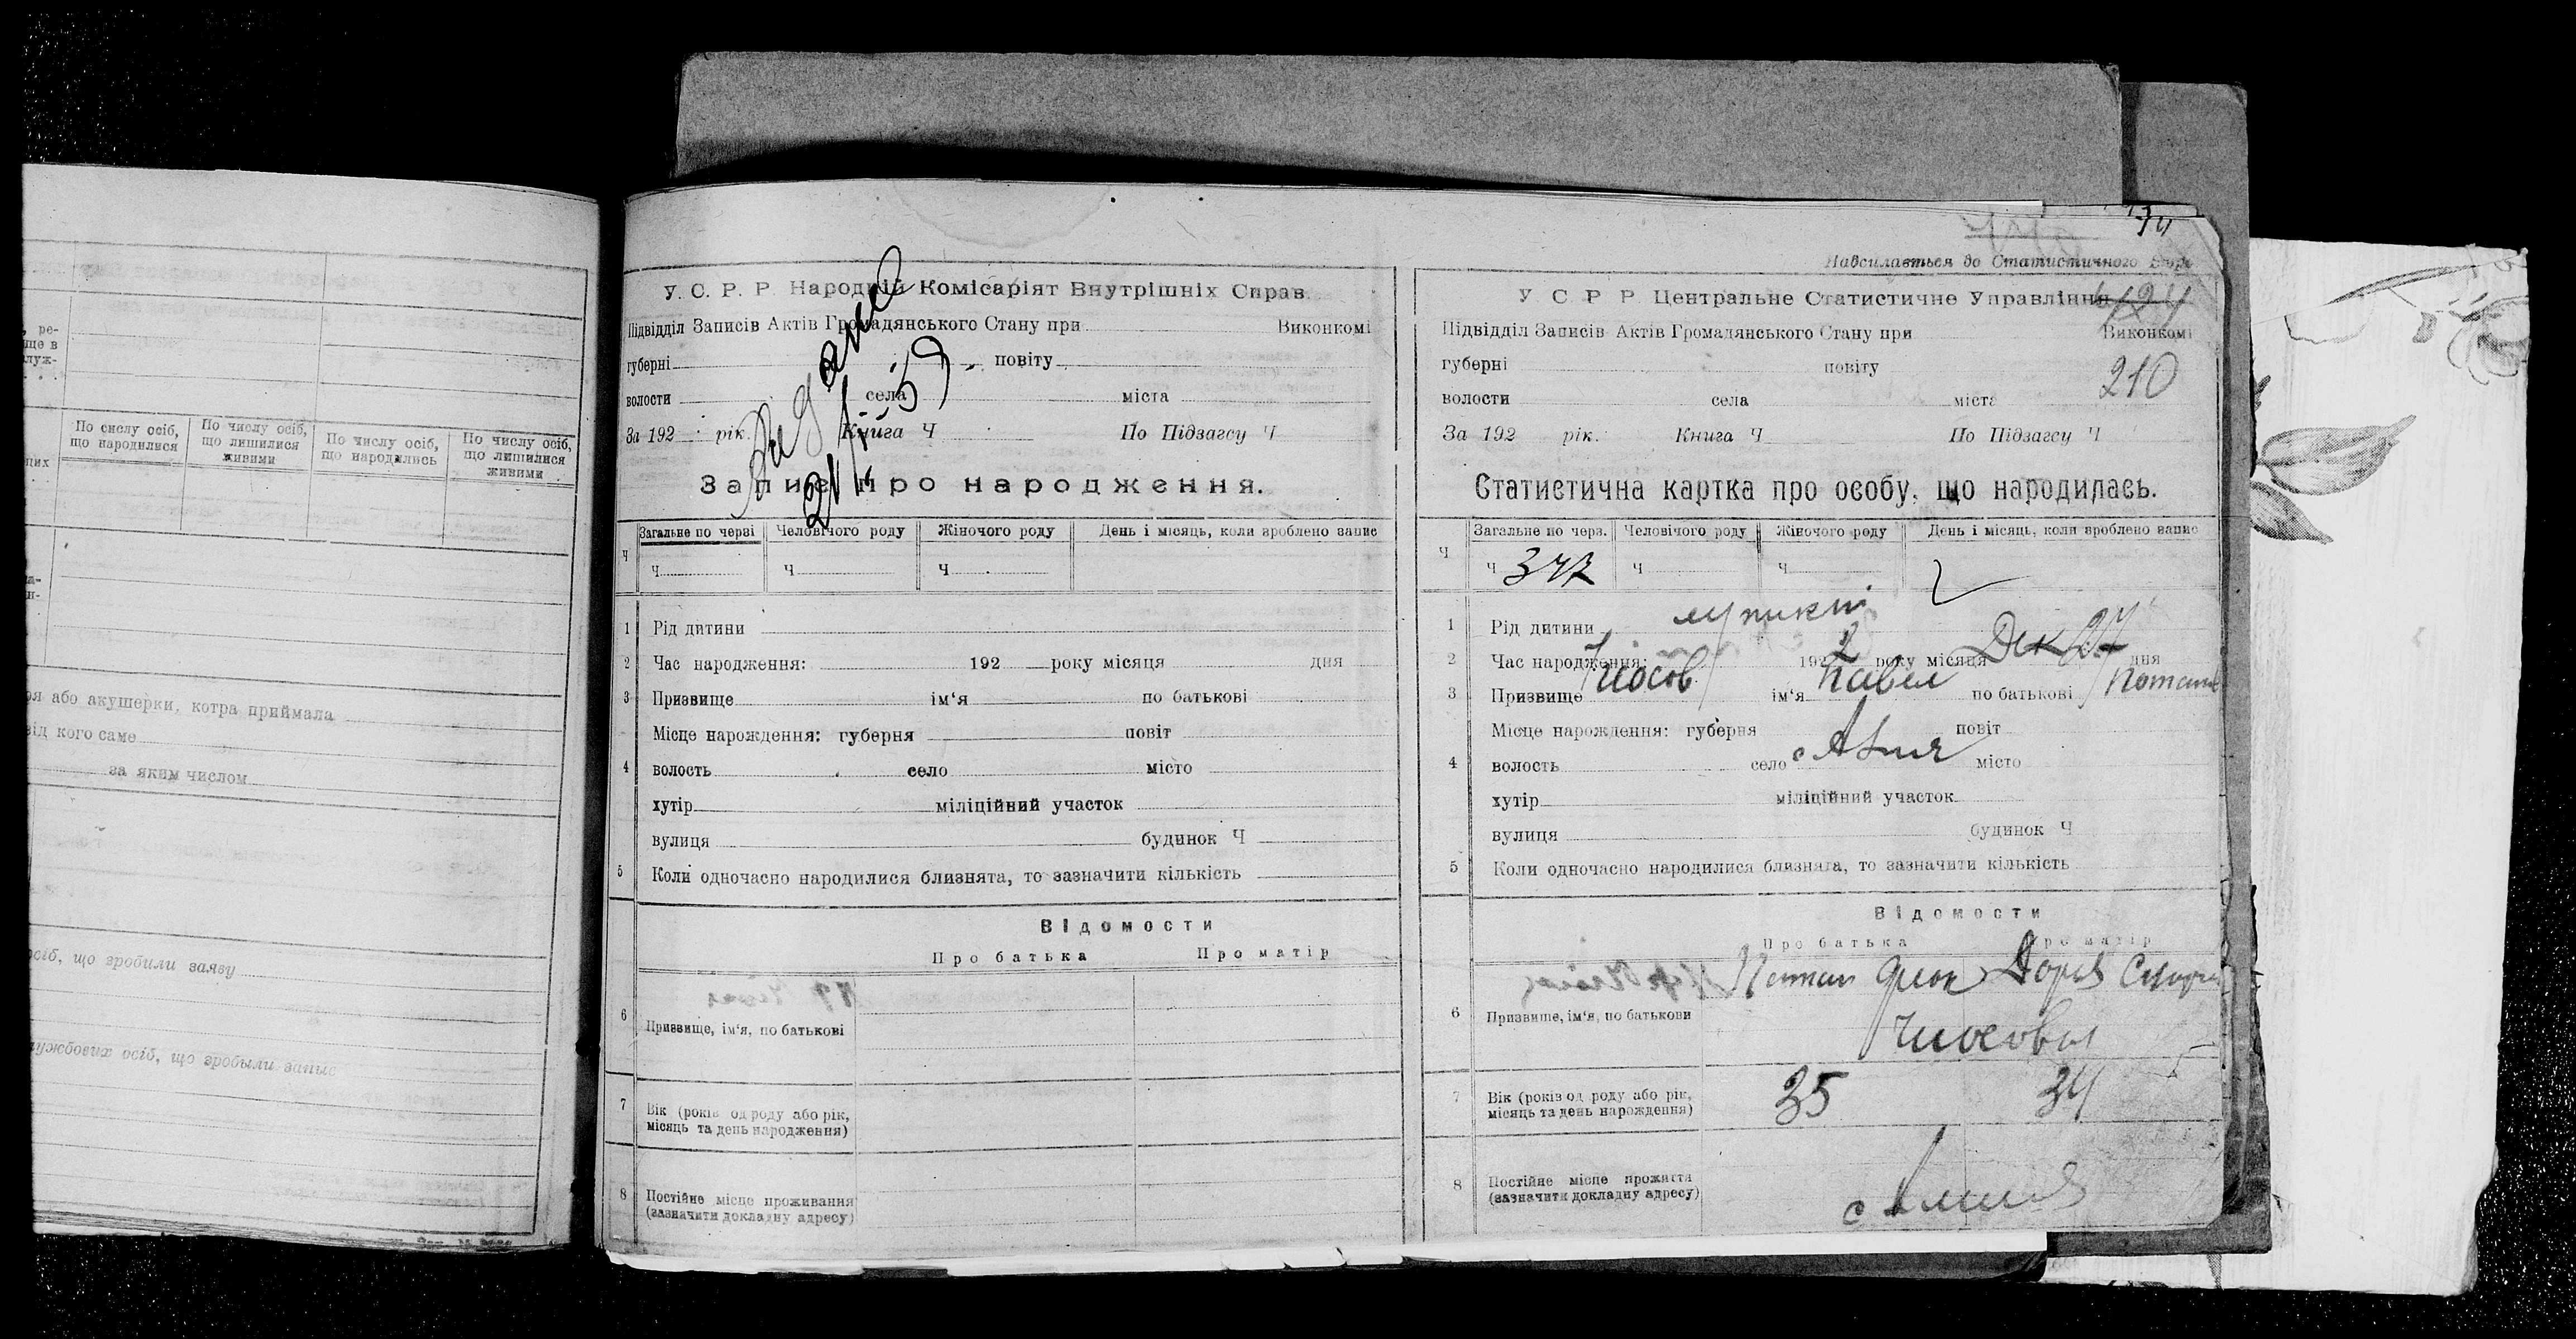 ре-
ще в
луж-
По числу осіб, що народилися
По числу осіб, що лишилися живими
По числу осіб, що народились
По числу осіб, що лишилися живими
ря або акушерки, котра приймала
від кого саме
за яким числом
осіб, що зробили заяву
лужбових осіб, що зробыли запис
У. С. Р. Р. Народній Комісаріят Внутрішніх Справ
Підвідділ Записів Актів Громадянського Стану при Виконкомі
губерні повіту
волости села міста
За 192 рік. Книга Ч По Підзагсу Ч
Запис про народження.
Загальне по черзі Человічого роду Жіночого роду День і місяць, коли зроблено запис
Ч Ч Ч Ч
1 Рід дитини
2 Час народження: 192 року місяця дня
3 Призвище ім'я по батькові
Місце народження: губерня повіт
4 волость село місто
хутір міліційний участок
вулиця будинок Ч
5 Коли одночасно народилися близнята, то зазначити кількість
Відомости
Про батька Про матір
6 Призвище, ім'я, по батькові
7 Вік (років од роду або рік, місяць та день народження)
8 Постійне місце проживання (зазначити докладну адресу)
Надсилається до Статистичного Бюро
У С Р Р Центральне Статистичне Управління
Підвідділ Записів Актів Громадянського Стану при Виконкомі
губерні повіту 210
волости села міста
За 192 рік. Книга Ч По Підзагсу Ч
Статистична картка про особу, що народилась.
Загальне по черз. Человічого роду Жіночого роду День і місяць, коли зроблено запис
Ч Ч 342 Ч Ч
1 Рід дитини
2 Час народження: 192 2 року місяця Дек 24 дня
3 Призвище Чиосов ім'я Павел по батькові
Місце нарождення: губерня повіт
4 волость село місто
хутір міліційний участок
вулиця будинок Ч
5 Коли одночасно народилися близнята, то зазначити кількість
Відомости
Про батька Про матір
6 Призвище, ім'я, по батькови
7 Вік (років од роду або рік, місяць та день нарождення) 35 34
8 Постійне місце прожиття (зазначити докладну адресу)